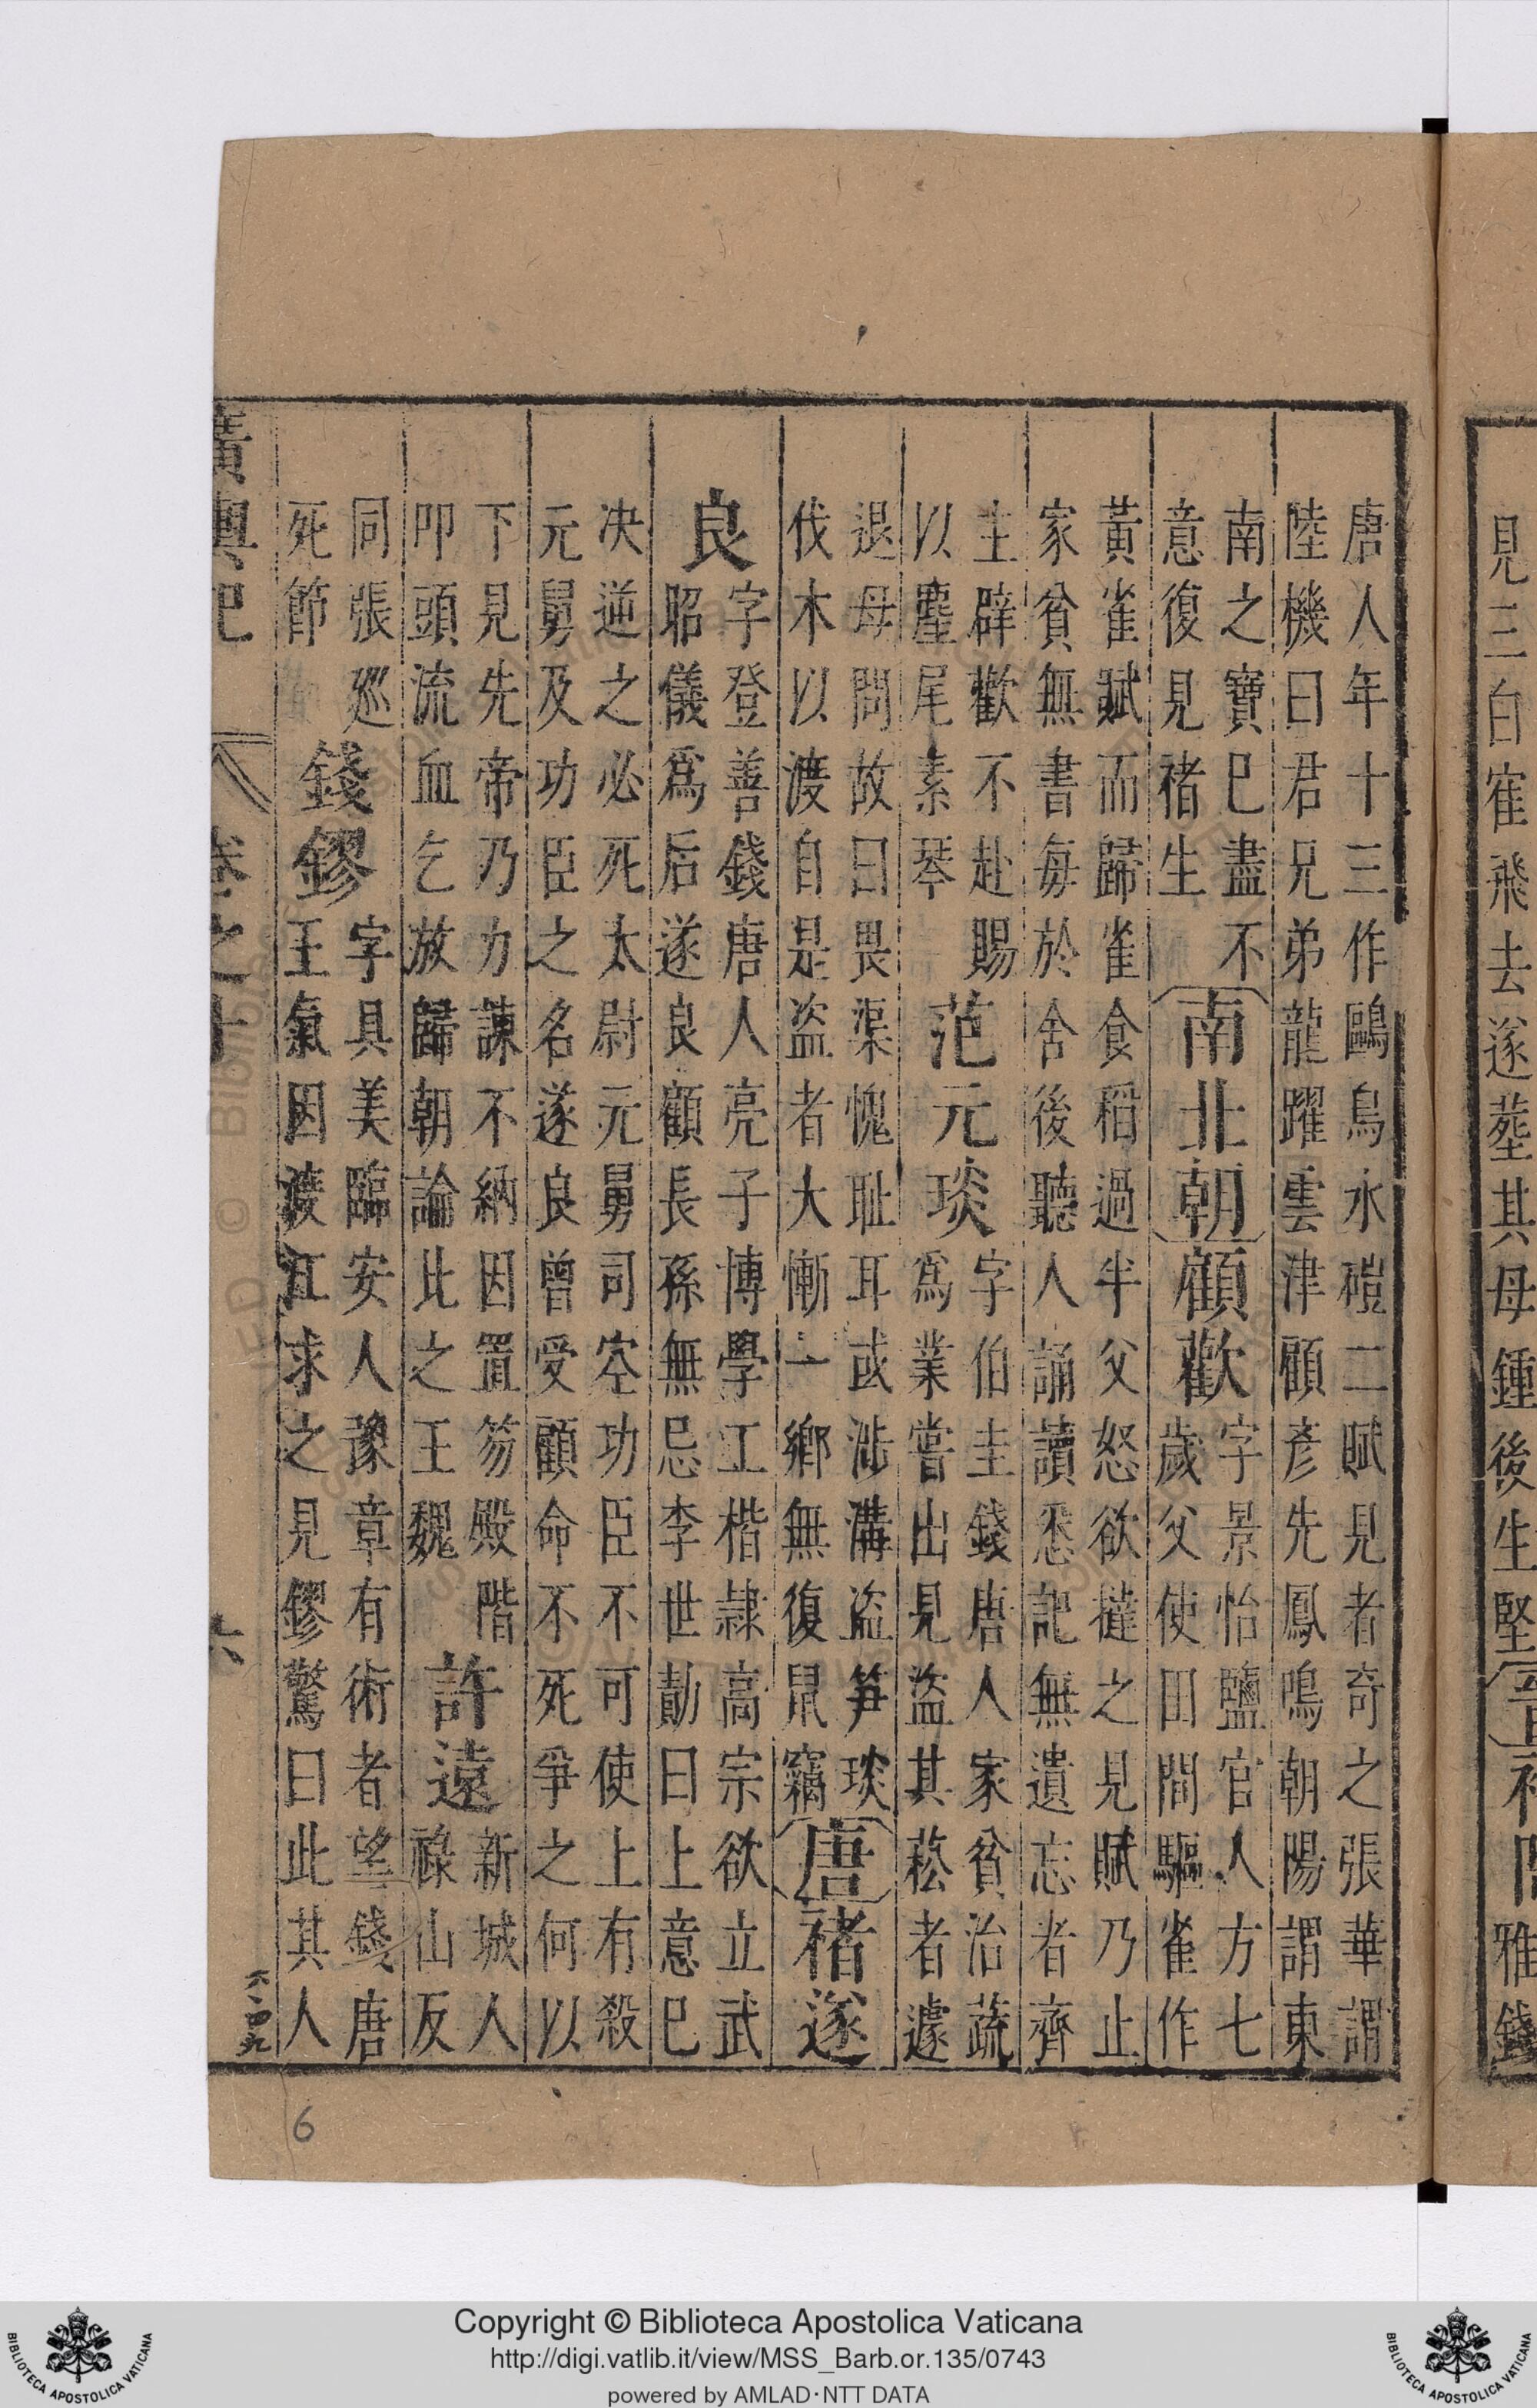 見三白隺飛去遂塟其母鍾後生堅
唐人年十三作鷗鳥水磑二賦見者奇之張華謂
陸機曰君兄弟龍躍雲津顧彥先鳳鳴朝陽謂東
南之寶已盡不
意復見褚生
南北朝顧歡
字景怡鹽官人方七
歲父使田間驅雀作
黃雀賦而歸雀食稻過半父怒欲撻之見賦乃止
家貧無書每於舍後聽人誦讀悉記無遺忘者齊
主辟歡不赴賜
以麈尾素琴
范元琰
字伯圭錢唐人家貧治蔬
爲業嘗出見盜其菘者遽
退母問故曰畏渠愧耻耳或涉溝盜笋琰
伐木以渡自是盜者大慚一鄉無復鼠竊
唐褚遂
良
字登善錢唐人亮子博學工楷隷高宗欲立武
昭儀爲后遂良顧長孫無忌李世勣曰上意已
决逆之必死太尉元舅司空功臣不可使上有殺
元舅及功臣之名遂良曾受顧命不死爭之何以
下見先帝乃力諫不納因置笏殿階
叩頭流血乞放歸朝論比之王魏
許遠
新城人
祿山反
同張巡
死節
錢鏐
字具美臨安人豫章有術者望錢唐
王氣因渡江求之見鏐驚曰此其人
廣輿記 卷之十 六
6
Copyright © Biblioteca Apostolica Vaticana
http://digi.vatlib.it/view/MSS_Barb.or.135/0743
powered by AMLAD·NTT DATA
BIBLIOTECA APOSTOLICA VATICANA
BIBLIOTECA APOSTOLICA VATICANA